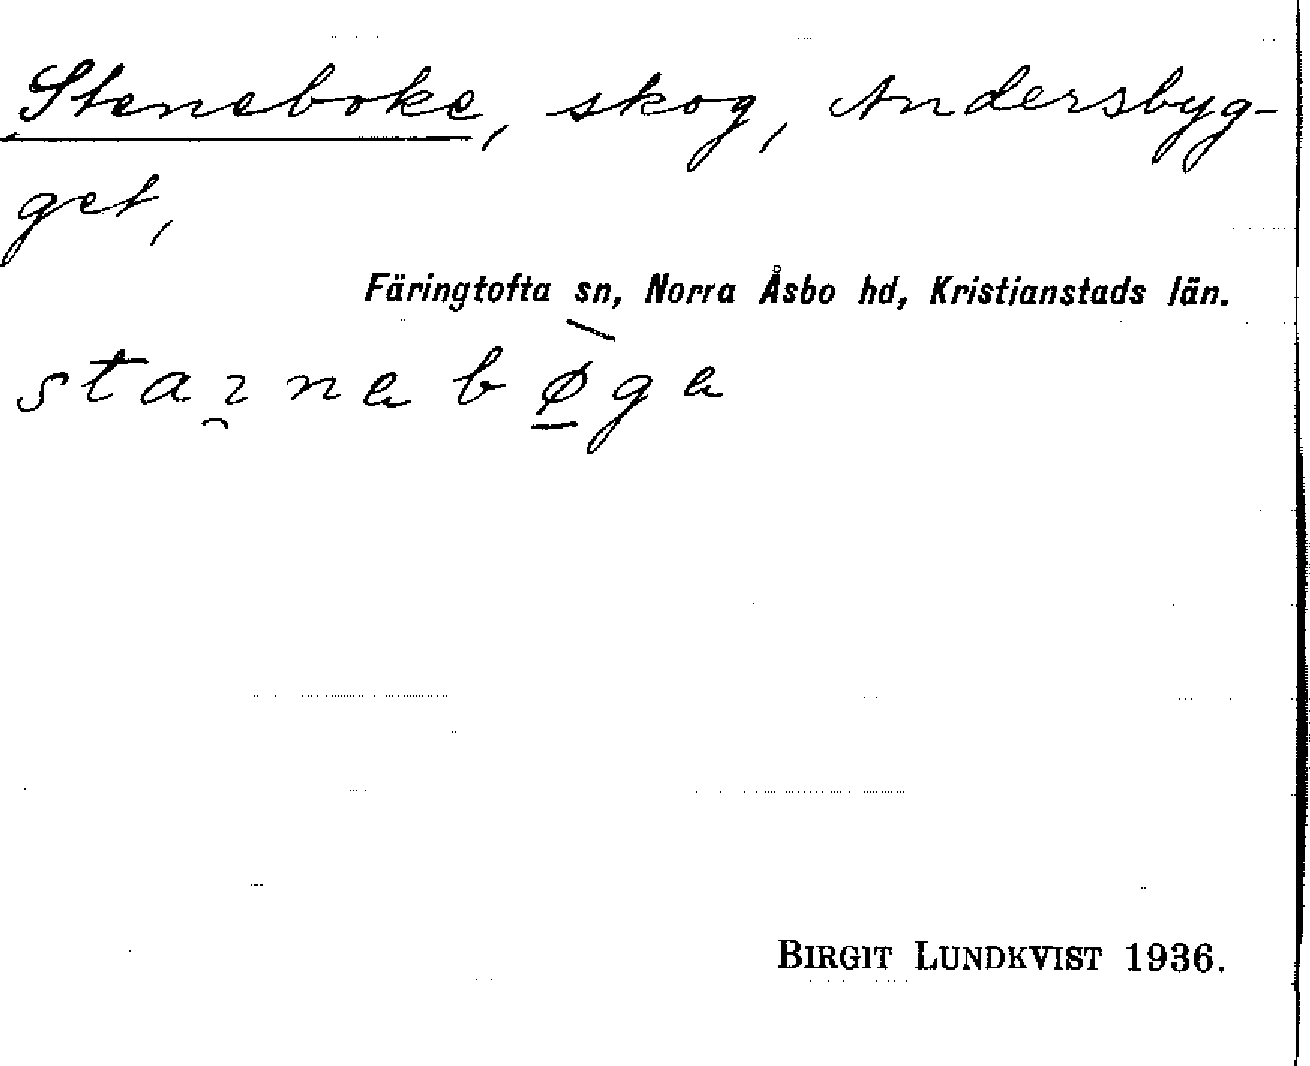 Steneboke, skog, Andersbyg-
get,
Färingtofta sn, Norra Åsbo hd, Kristianstads län.
staɪ̯nəbø̱̀gə
BIRGIT LUNDKVIST 1936.